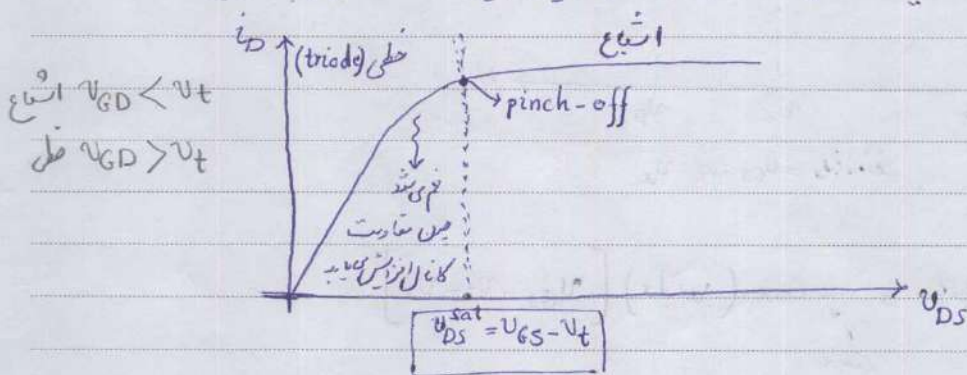 i_D
خطی (triode)
اشباع
pinch-off
اشباع v_GD < v_t
خطی v_GD > v_t
خم می‌شود
چون مقاومت
کانال افزایش می‌یابد
v_DS
v_DS^sat = v_GS - v_t